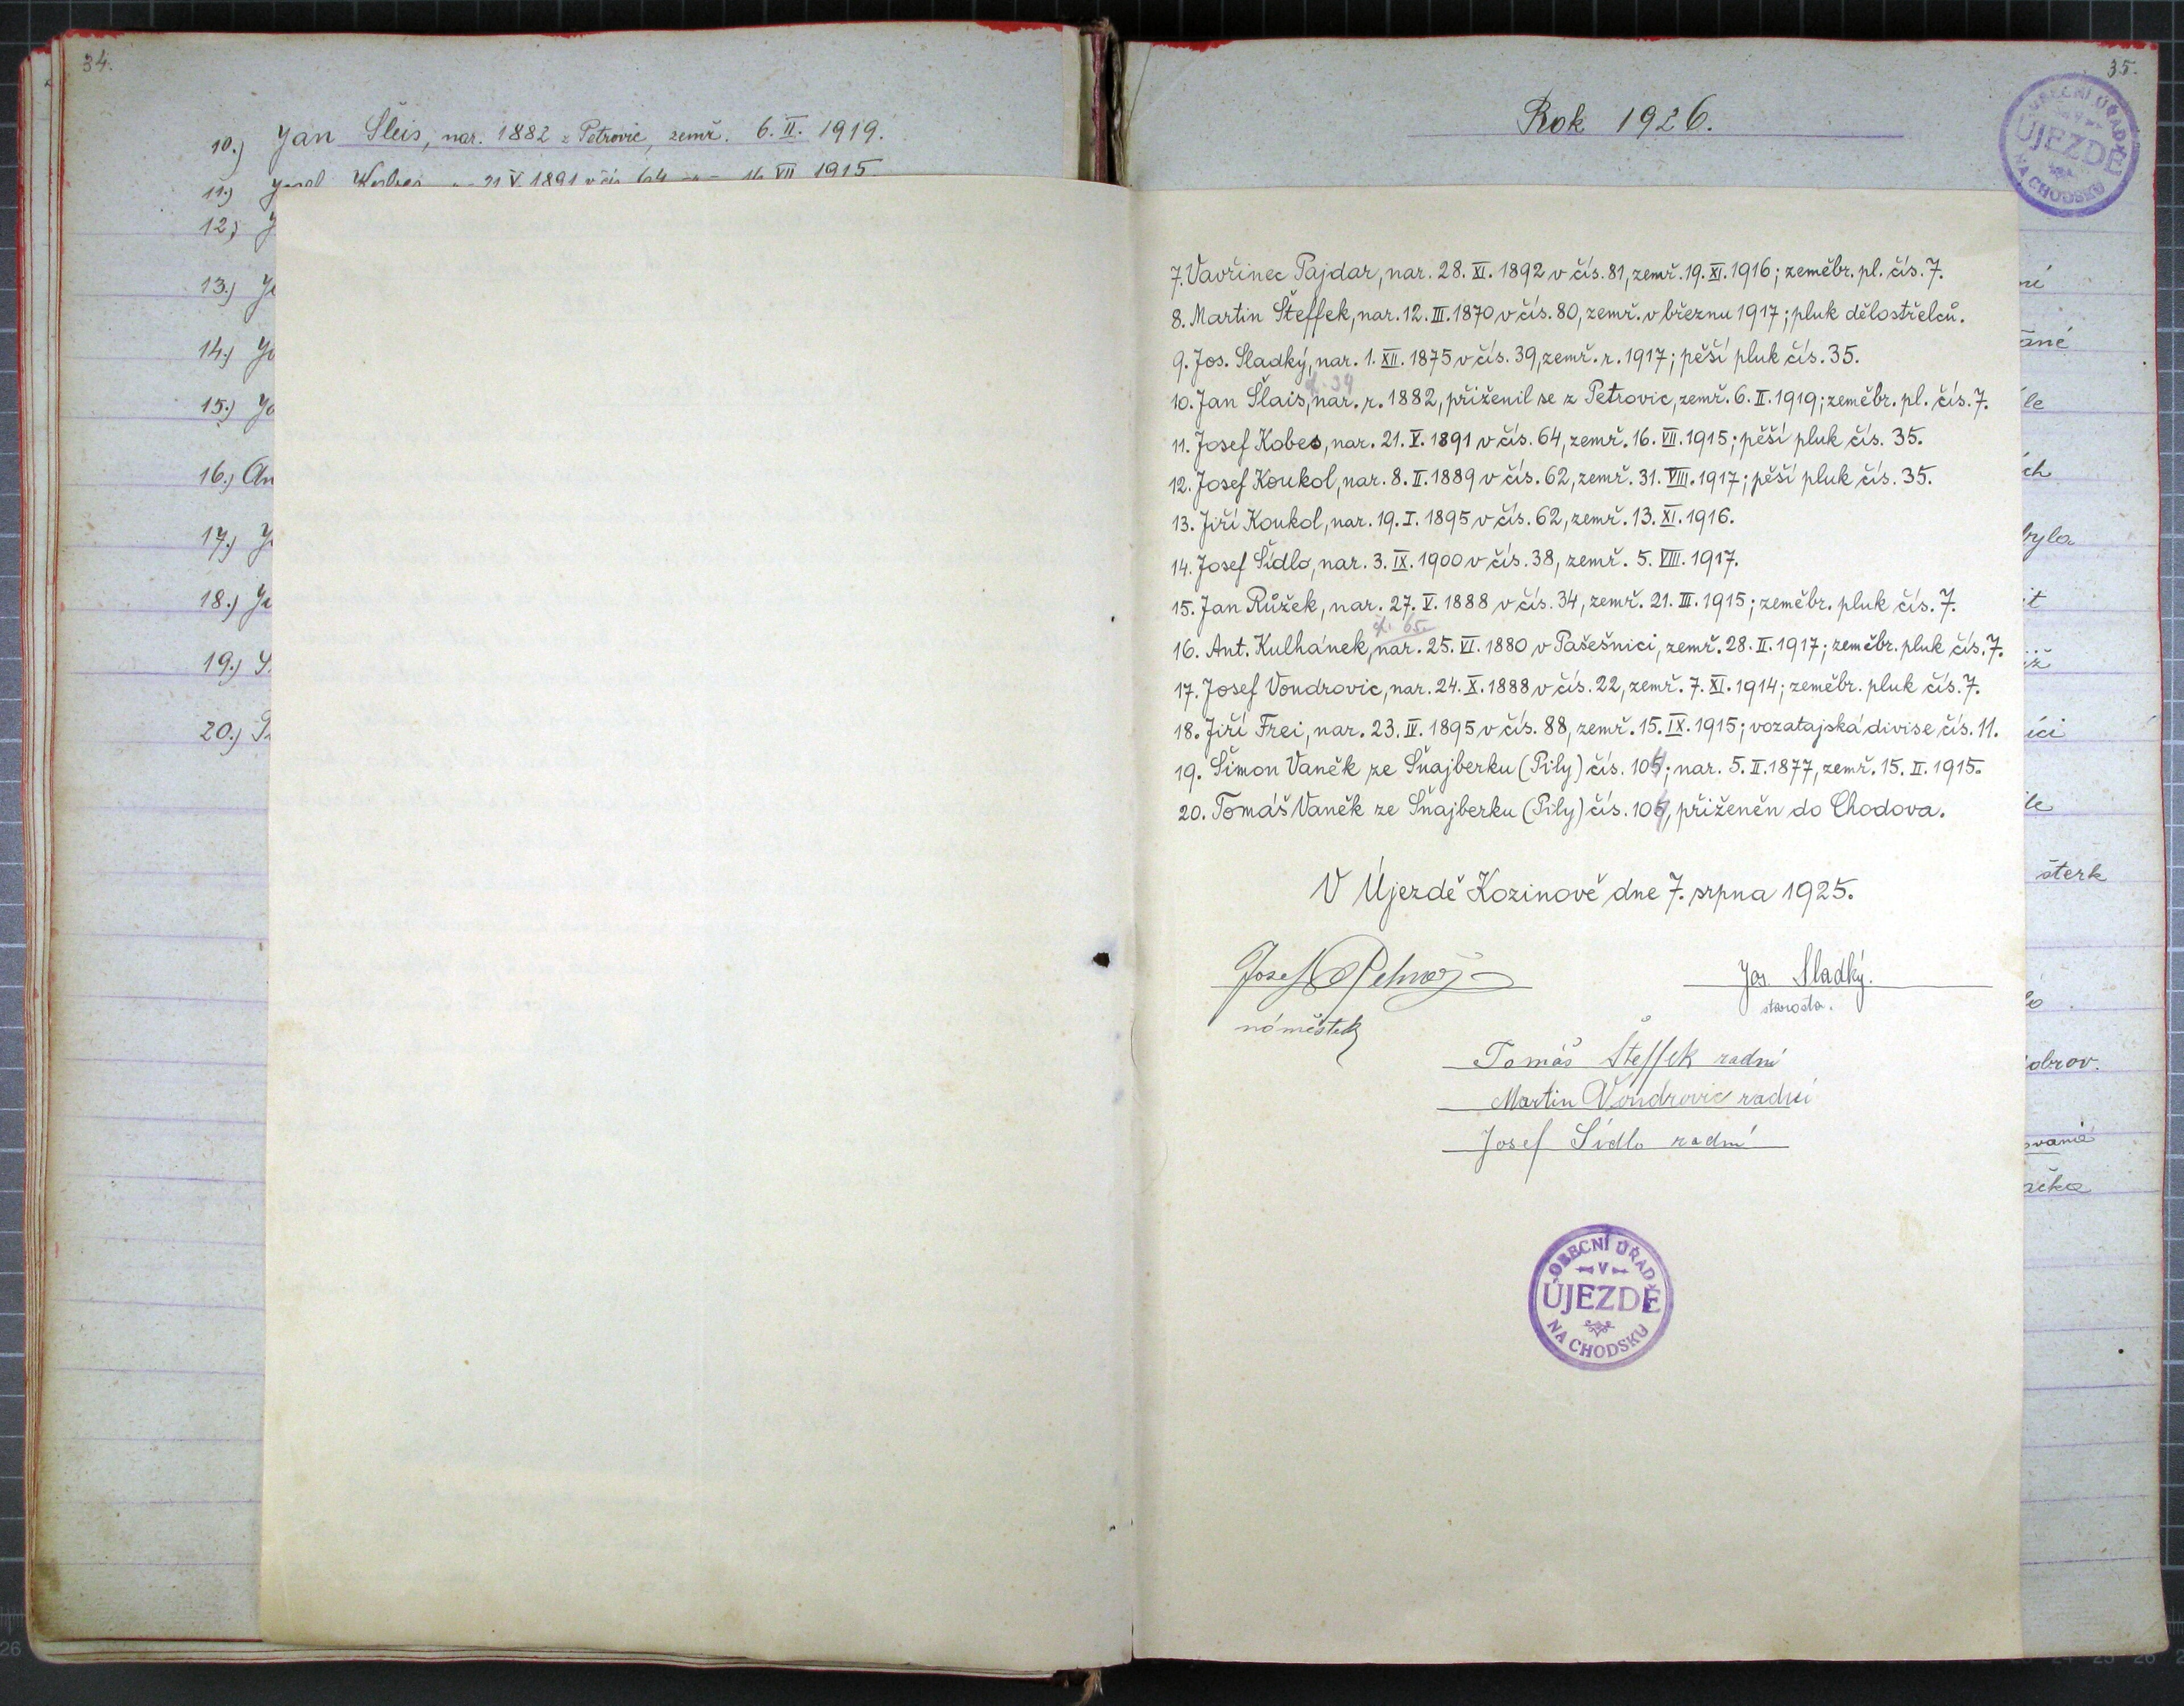 34.
10.) Jan Šleis, nar. 1882 z Petrovic, zemř. 6. II. 1919.
11.) Josef Kobes 21. V. 1891 v čís. 64 16. VII. 1915.
12.)
13.)
14.)
15.)
16.) An
17.)
18.)
19.)
20.)
35.
OBECNÍ ÚŘAD
V
ÚJEZDĚ
NA CHODSKU
Rok 1926.
7. Vavřinec Pajdar, nar. 28. XI. 1892 v čís. 81, zemř. 19. XI. 1916; zeměbr. pl. čís. 7.
8. Martin Šteffek, nar. 12. III. 1870 v čís. 80, zemř. v březnu 1917; pluk dělostřelců.
9. Jos. Sladký, nar. 1. XII. 1875 v čís. 39, zemř. r. 1917; pěší pluk čís. 35.
č. 39
10. Jan Šlais, nar. r. 1882, přiženil se z Petrovic, zemř. 6. II. 1919; zeměbr. pl. čís. 7.
11. Josef Kobes, nar. 21. V. 1891 v čís. 64, zemř. 16. VII. 1915; pěší pluk čís. 35.
12. Josef Koukol, nar. 8. II. 1889 v čís. 62, zemř. 31. VIII. 1917; pěší pluk čís. 35.
13. Jiří Koukol, nar. 19. I. 1895 v čís. 62, zemř. 13. XI. 1916.
14. Josef Šídlo, nar. 3. IX. 1900 v čís. 38, zemř. 5. VIII. 1917.
15. Jan Růžek, nar. 27. V. 1888 v čís. 34, zemř. 21. III. 1915; zeměbr. pluk čís. 7.
č. 65
16. Ant. Kulhánek, nar. 25. VI. 1880 v Pašešnici, zemř. 28. II. 1917; zeměbr. pluk čís. 7.
17. Josef Vondrovic, nar. 24. X. 1888 v čís. 22, zemř. 7. XI. 1914; zeměbr. pluk čís. 7.
18. Jiří Frei, nar. 23. IV. 1895 v čís. 88, zemř. 15. IX. 1915; vozatajská divise čís. 11.
19. Šimon Vaněk ze Šnajberku (Pily) čís. 104; nar. 5. II. 1877, zemř. 15. II. 1915.
20. Tomáš Vaněk ze Šnajberku (Pily) čís. 104, přiženěn do Chodova.
V Újezdě Kozinově dne 7. srpna 1925.
Josef
náměstek
Jos. Sladký.
starosta.
Tomáš Šteffek radní
Martin Vondrovic radní
Josef Šídlo radní
OBECNÍ ÚŘAD
V
ÚJEZDĚ
NA CHODSKU
ní
le
ch
byla
it
íci
le
šterk
obrov.
ování
ačka